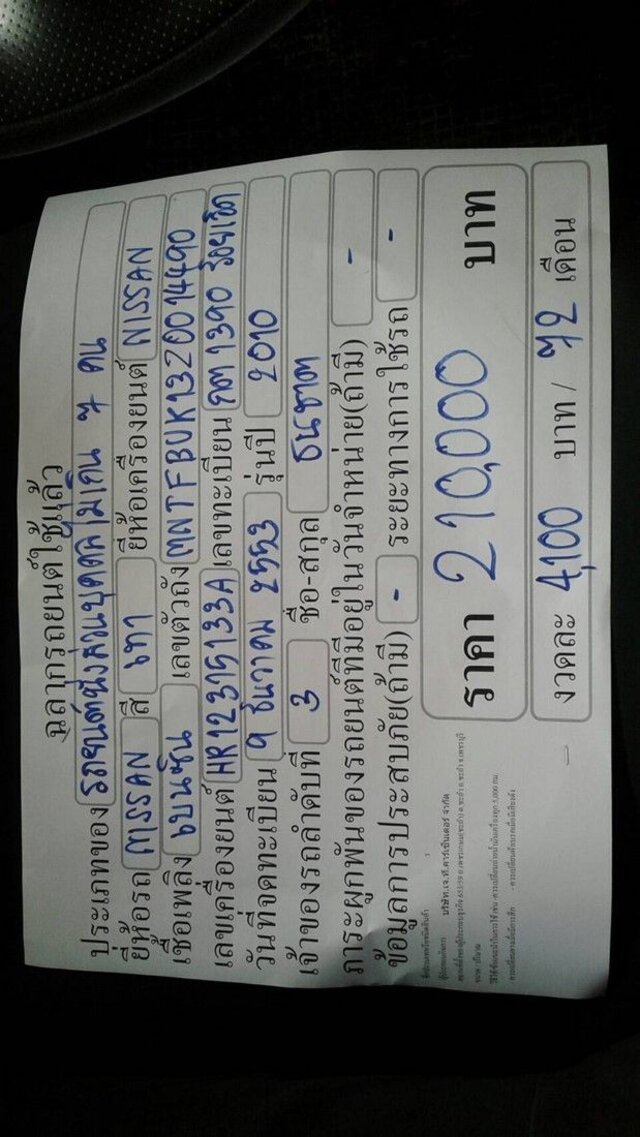 ฉลากรถยนต์ใช้แล้ว
ประเภทของ รถยนต์นั่งส่วนบุคคลไม่เกิน 7 คน
ยี่ห้อรถ NISSAN สี เทา ยี่ห้อเครื่องยนต์ NISSAN
เชื้อเพลิง เบนซิน เลขตัวถัง MNTFBUK13Z0014490
เลขเครื่องยนต์ HR12315133A เลขทะเบียน กต 1390 ร้อยเอ็ด
วันที่จดทะเบียน 9 ธันวาคม 2553 รุ่นปี 2010
เจ้าของรถลำดับที่ 3 ชื่อ-สกุล ธนชาต
ภาระผูกพันของรถยนต์ที่มีอยู่ในวันจำหน่าย(ถ้ามี) -
ข้อมูลการประสบภัย(ถ้ามี) - ระยะทางการใช้รถ -
ราคา 210,000 บาท
งวดละ 4,100 บาท / 72 เดือน
บริษัท.เจ.ที.คาร์เซ็นเตอร์ จำกัด